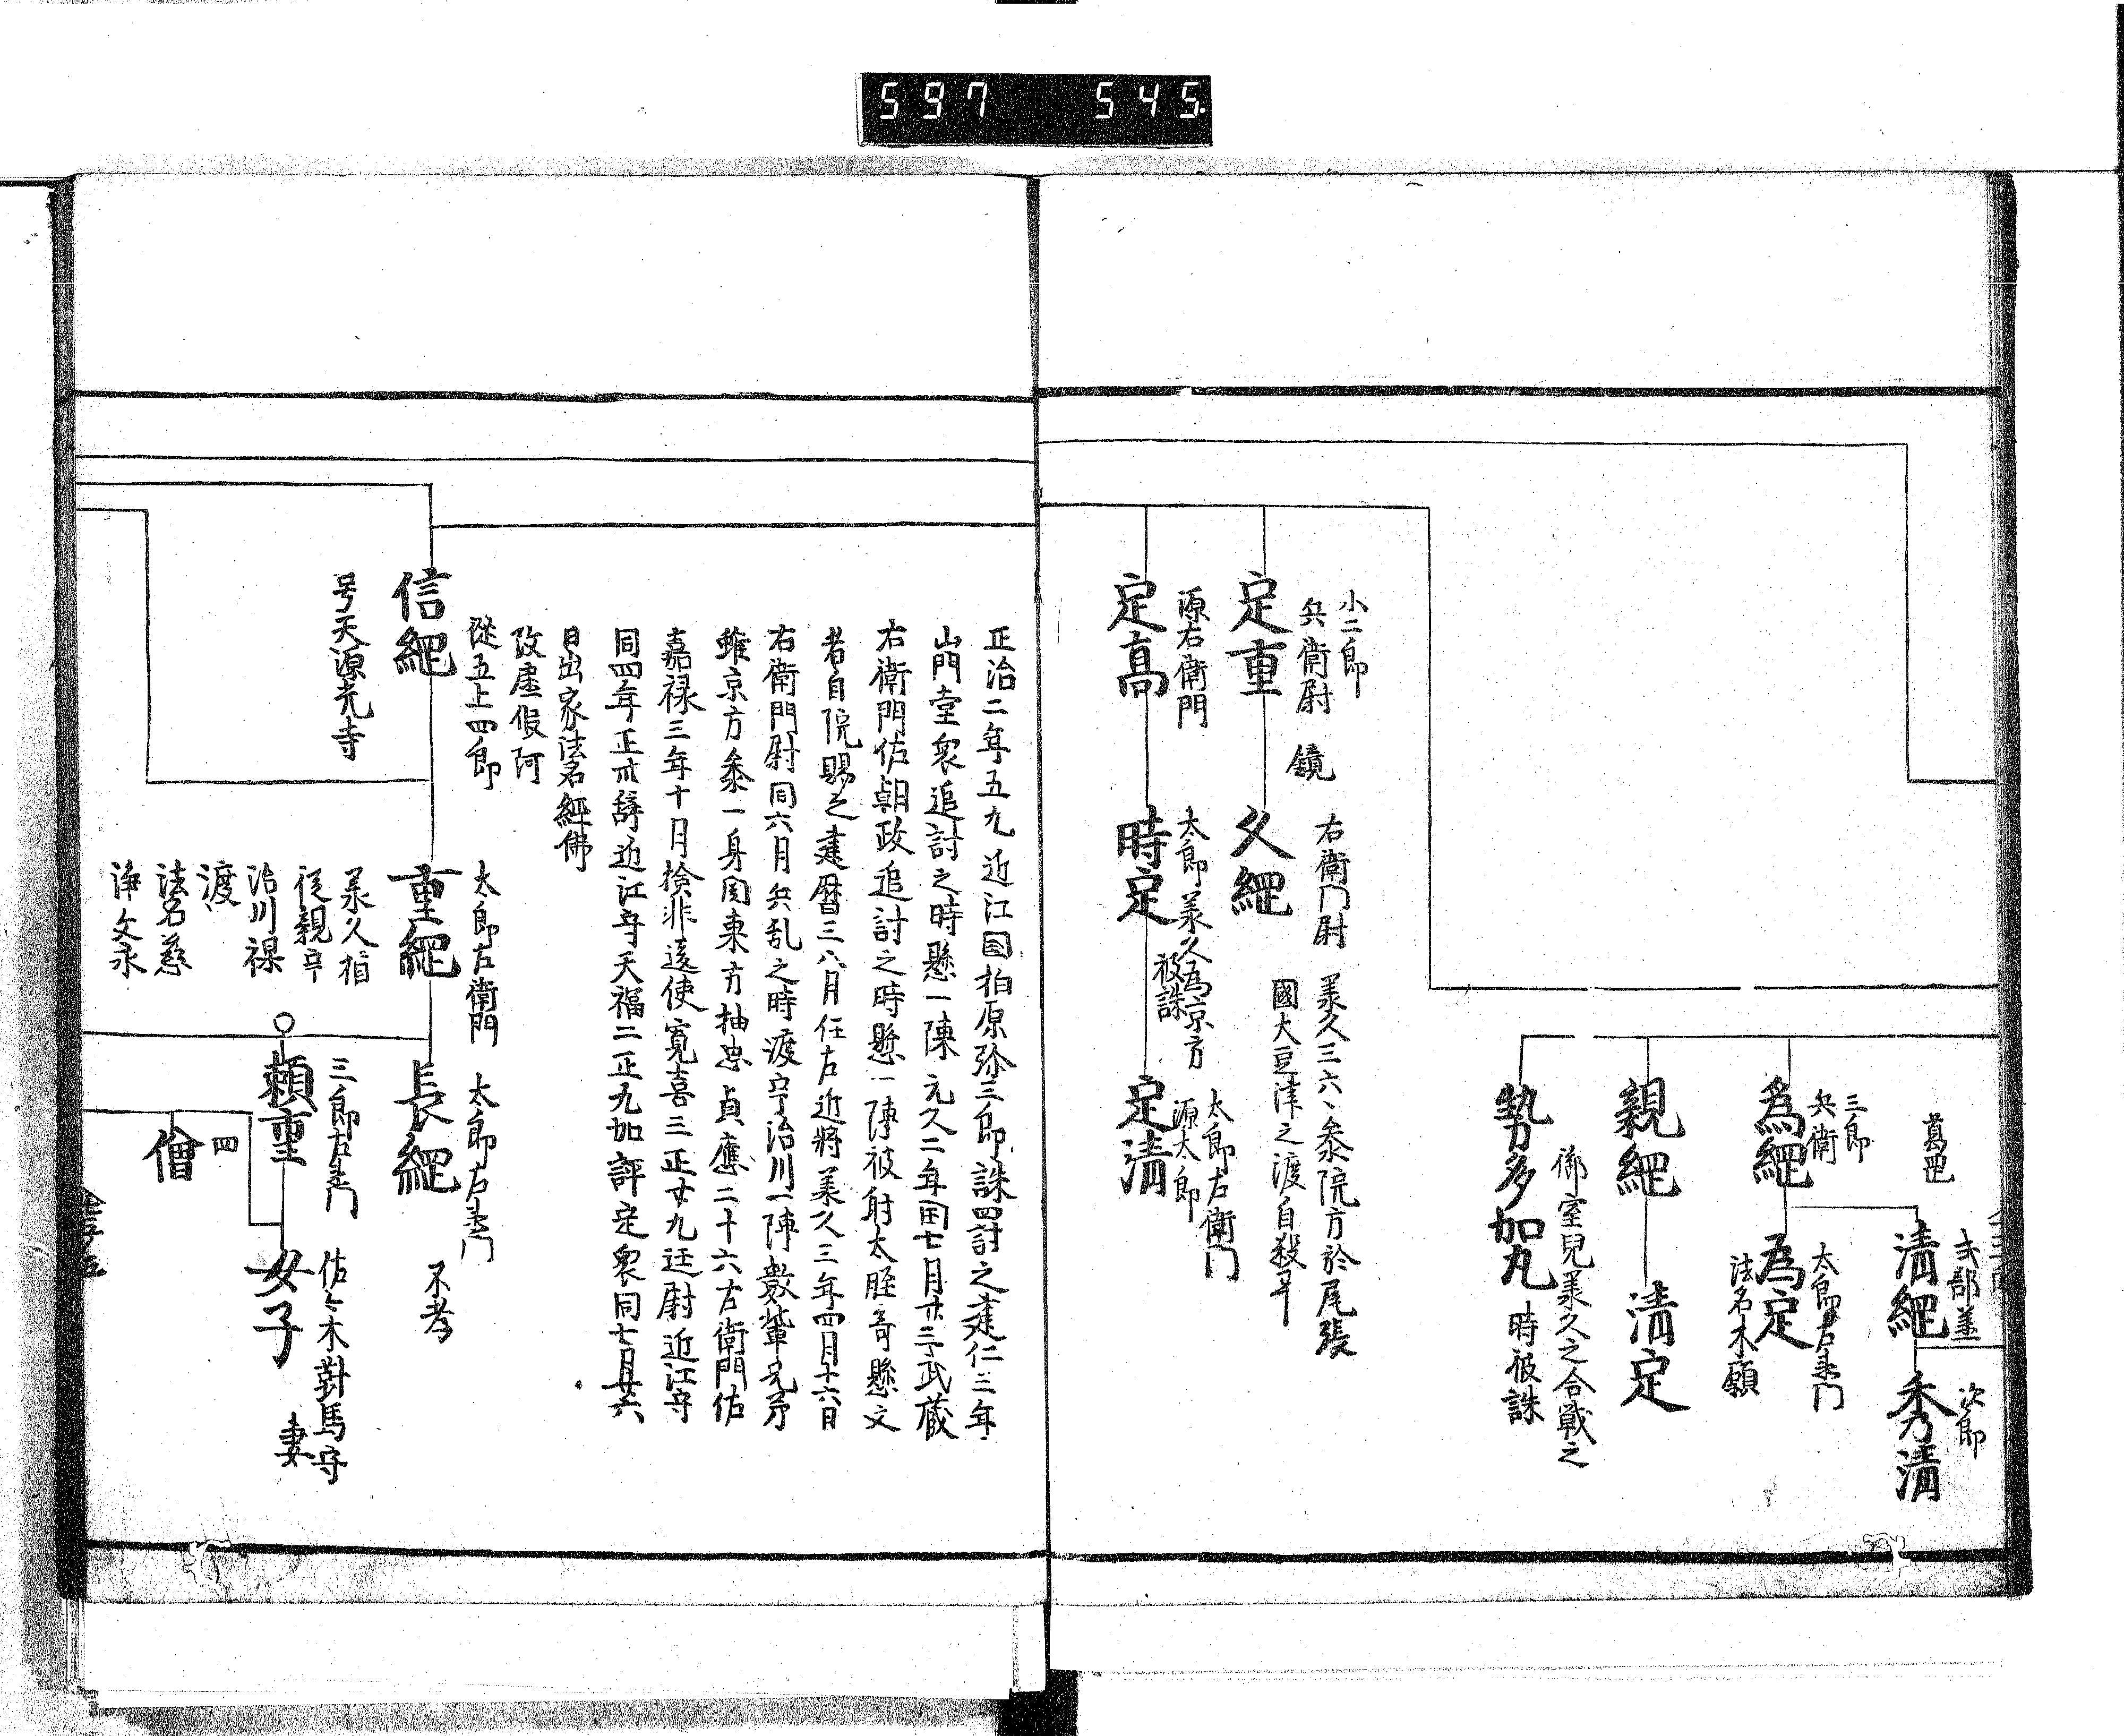 597 545
葛西
式部並
清綱
次郎
秀清
三郎
兵衛
為綱
太郎左衛門
為定
法名本願
親綱
清定
勢多加丸
御室児美久之合戦之
時被誅
小二郎
兵衛尉
鏡
定重
右衛門尉
久綱
美久三六、参院方於尾張
國大豆津之渡自殺了
源右衛門
定高
太郎美久為京方
被誅
時定
太郎右衛門
源太郎
定清
正治二年五九近江国柏原弥三郎誅罸討之建仁三年
山門堂衆追討之時懸一陳元久二年閏七月廿三武蔵
右衛門佐朝政追討之時懸一陣被射太腔奇懸文
者自院賜之建暦三八月任左近将美久三年四月十六日
右衛門尉同六月兵乱之時渡宇治川一陣数輩兄弟
雖京方参一身関東方抽忠貞應二十六右衛門佐
嘉禄三年十月検非違使寛喜三正廿九廷尉近江守
同四年正廿辞近江守天福二正九加評定衆同七月廿六
日出家法名経佛
改虚假阿
従五上四郎
信綱
号天源光寺
太郎左衛門
重綱
美久相
従親守
治川裸
渡
法名慈
浄文永
太郎左衛門
長綱
不孝
三郎左衛門
頼重
佐々木對馬守
妻
女子
四
僧